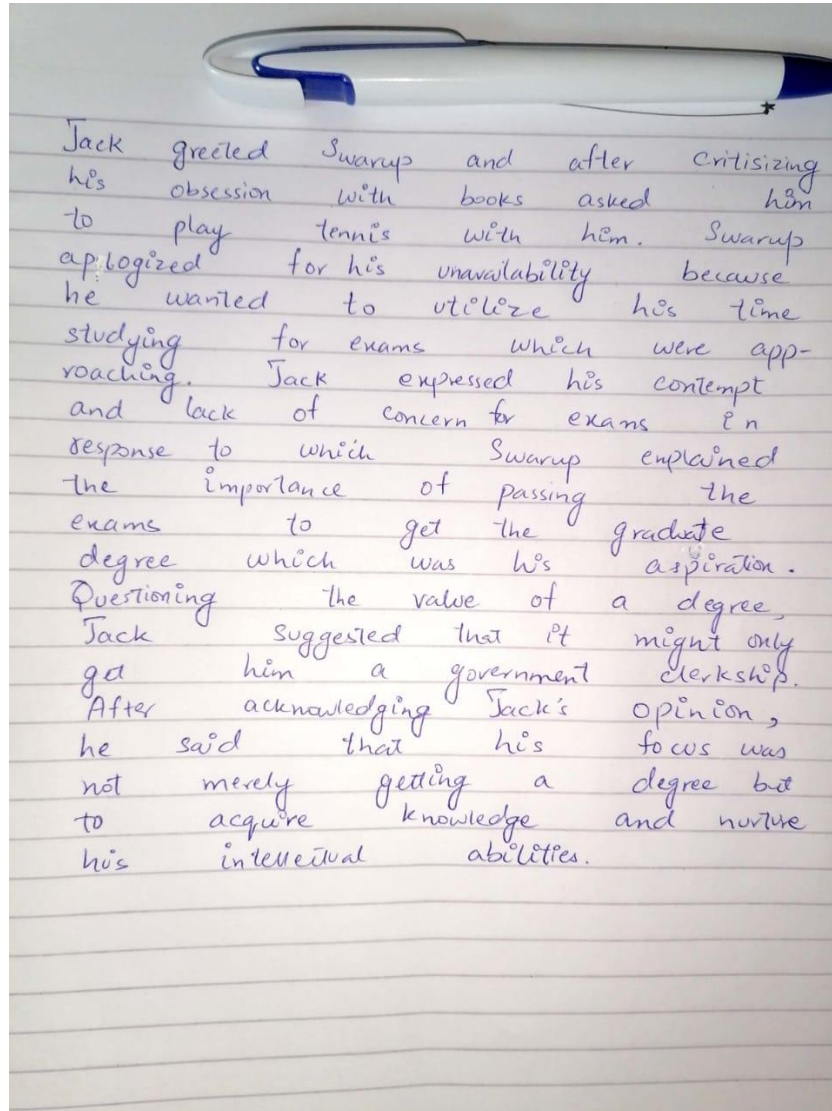 Jack greeted Swarup and after critisizing
his obsession with books asked him
to play tennis with him. Swarup
aplogized for his unavailability because
he wanted to utilize his time
studying for exams which were app-
roaching. Jack expressed his contempt
and lack of concern for exams in
response to which Swarup explained
the importance of passing the
exams to get the graduate
degree which was his aspiration.
Questioning the value of a degree,
Jack suggested that it might only
get him a government clerkship.
After acknowledging Jack's opinion,
he said that his focus was
not merely getting a degree but
to acquire knowledge and nurture
his intellectual abilities.